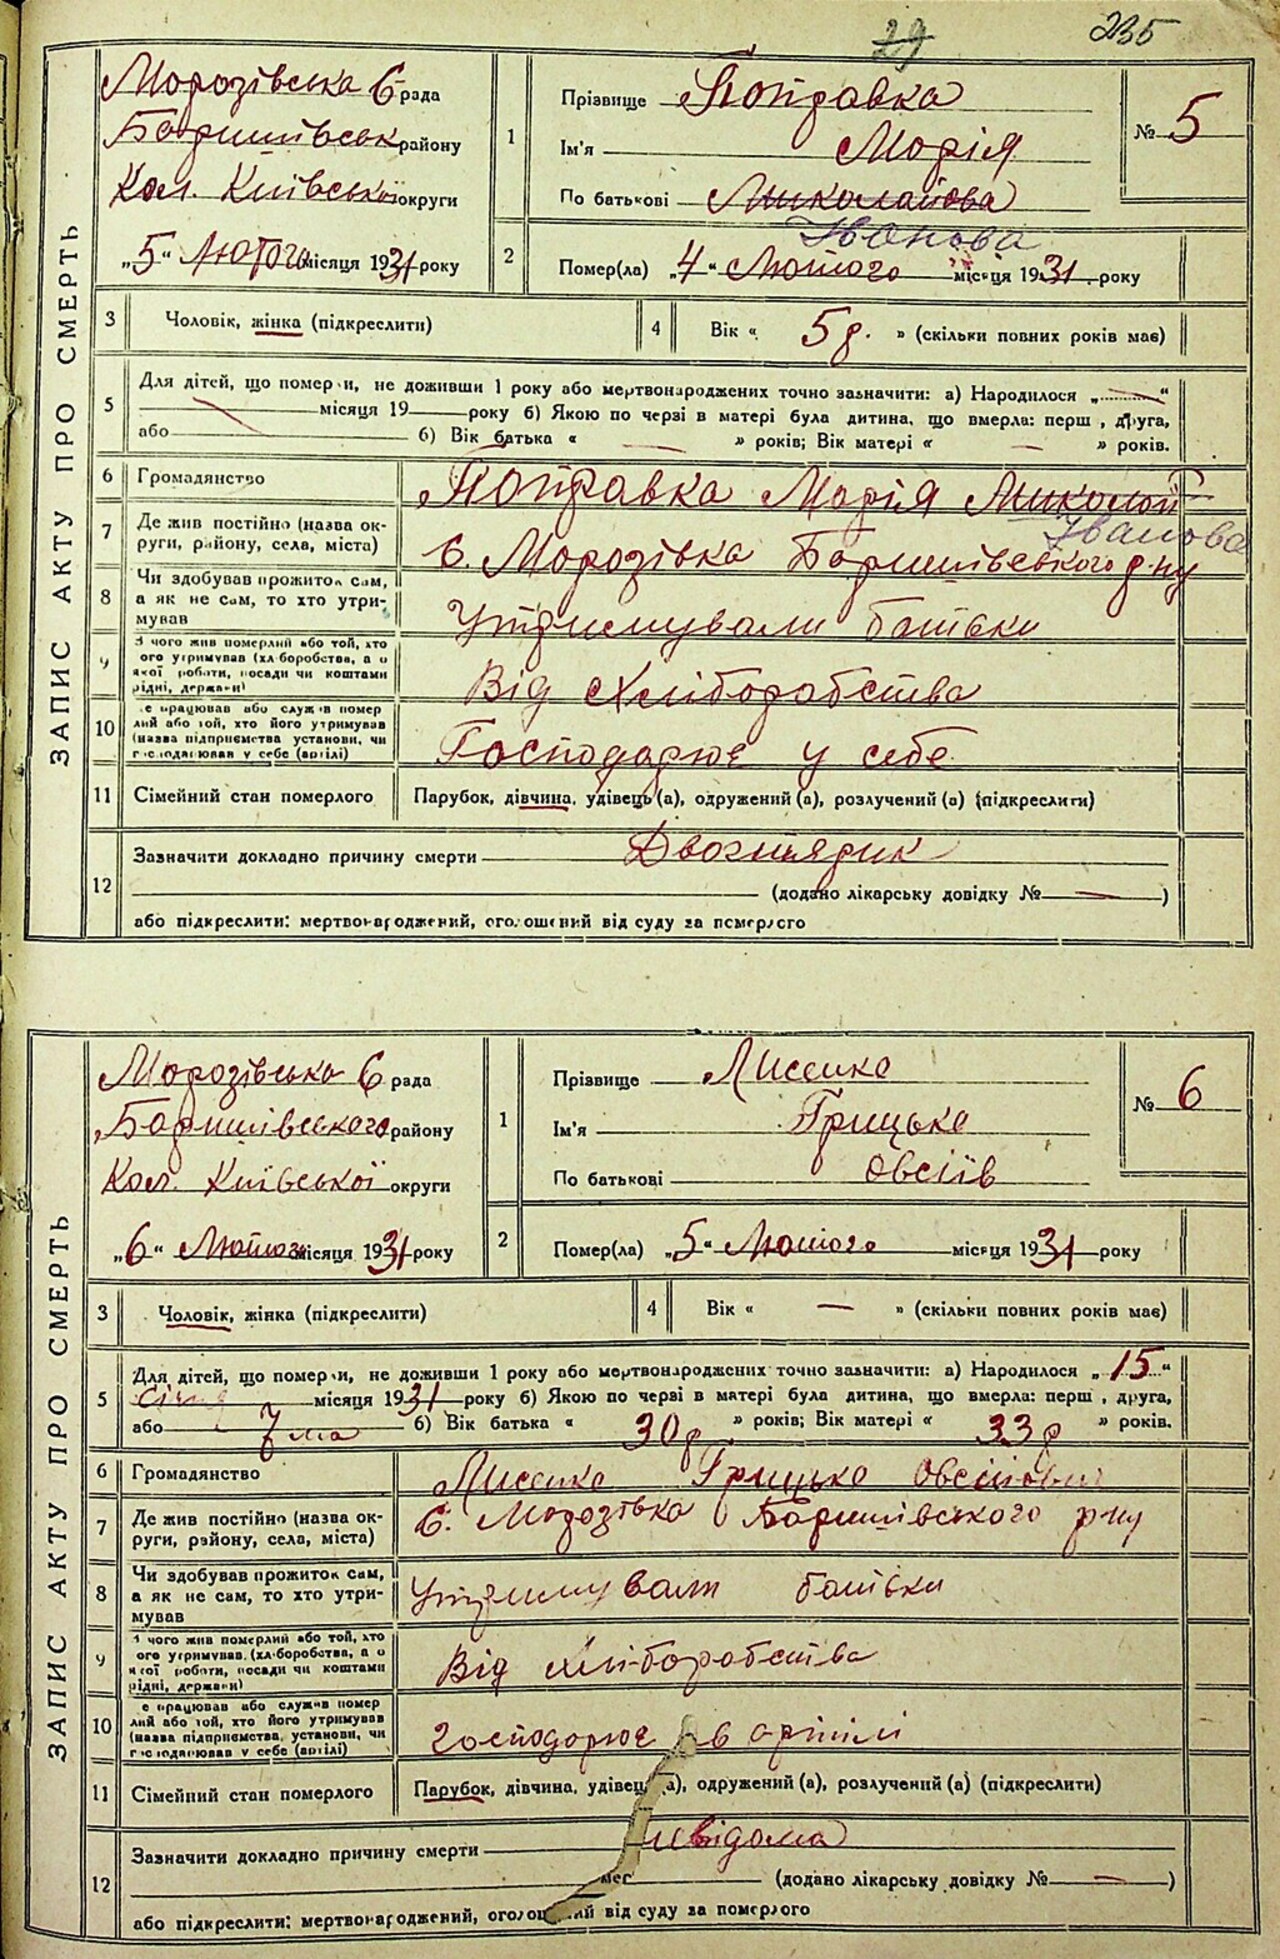 29 235
ЗАПИС АКТУ ПРО СМЕРТЬ
Морозівська С рада
Баришівськ району
Кол. Київської округи
„5“ Лютого місяця 1931 року
1
Прізвище Поправка
Ім'я Морія
По батькові Миколайова
Іванова
№ 5
2
Помер(ла) „4“ Лютого місяця 1931 року
3 Чоловік, жінка (підкреслити)
4 Вік « 5 р. » (скільки повних років має)
5
Для дітей, що помер и, не доживши 1 року або мертвонароджених точно зазначити: а) Народилося „ — “
— місяця 19 — року б) Якою по черзі в матері була дитина, що вмерла: перш , друга,
або — б) Вік батька « — » років; Вік матері « — » років.
6 Громадянство Поправка Марія Миколай
Іванова
7 Де жив постійно (назва ок-
руги, району, села, міста) С. Морозівка Баришівського р-ну
8 Чи здобував прожиток сам,
а як не сам, то хто утри-
мував Утримували батьки
9 З чого жив померлий або той, хто
ого утримував (хліборобства, а о
якої роботи, посади чи коштами
рідні, держави) Від Хліборобства
10 е працював або служив помер
лий або той, хто його утримував
(назва підприємства установи, чи
господарював у себе (артілі) Господарює у себе
11 Сімейний стан померлого Парубок, дівчина, удівець (а), одружений (а), розлучений (а) (підкреслити)
12 Зазначити докладно причину смерти Двоглядик
(додано лікарську довідку № — )
або підкреслити: мертвонароджений, оголошений від суду за померлого
ЗАПИС АКТУ ПРО СМЕРТЬ
Морозівська С рада
Баришівського району
Кол. Київської округи
„6“ Лютого місяця 1931 року
1
Прізвище Лисенко
Ім'я Грицько
По батькові Овсіїв
№ 6
2
Помер(ла) „5“ Лютого місяця 1931 року
3 Чоловік, жінка (підкреслити)
4 Вік « — » (скільки повних років має)
5
Для дітей, що помер и, не доживши 1 року або мертвонароджених точно зазначити: а) Народилося „15“
Січня місяця 1931 року б) Якою по черзі в матері була дитина, що вмерла: перш , друга,
або 7 ма б) Вік батька « 30 р » років; Вік матері « 33 р » років.
6 Громадянство Лисенко Грицько Овсійович
7 Де жив постійно (назва ок-
руги, району, села, міста) С. Морозівка Баришівського р-ну
8 Чи здобував прожиток сам,
а як не сам, то хто утри-
мував Утримували батьки
9 З чого жив померлий або той, хто
ого утримував (хліборобства, а о
якої роботи, посади чи коштами
рідні, держави) Від хліборобства
10 е працював або служив помер
лий або той, хто його утримував
(назва підприємства, установи, чи
господарював у себе (артілі) господорює в артілі
11 Сімейний стан померлого Парубок, дівчина, удівець (а), одружений (а), розлучений (а) (підкреслити)
12 Зазначити докладно причину смерти невідома
(додано лікарську довідку № — )
або підкреслити: мертвонароджений, оголошений від суду за померлого